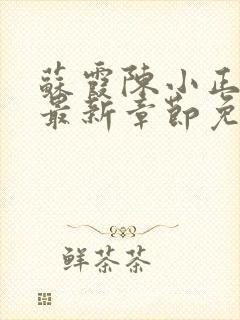 蘇霞陳小正
最新章節免
鮮茶茶